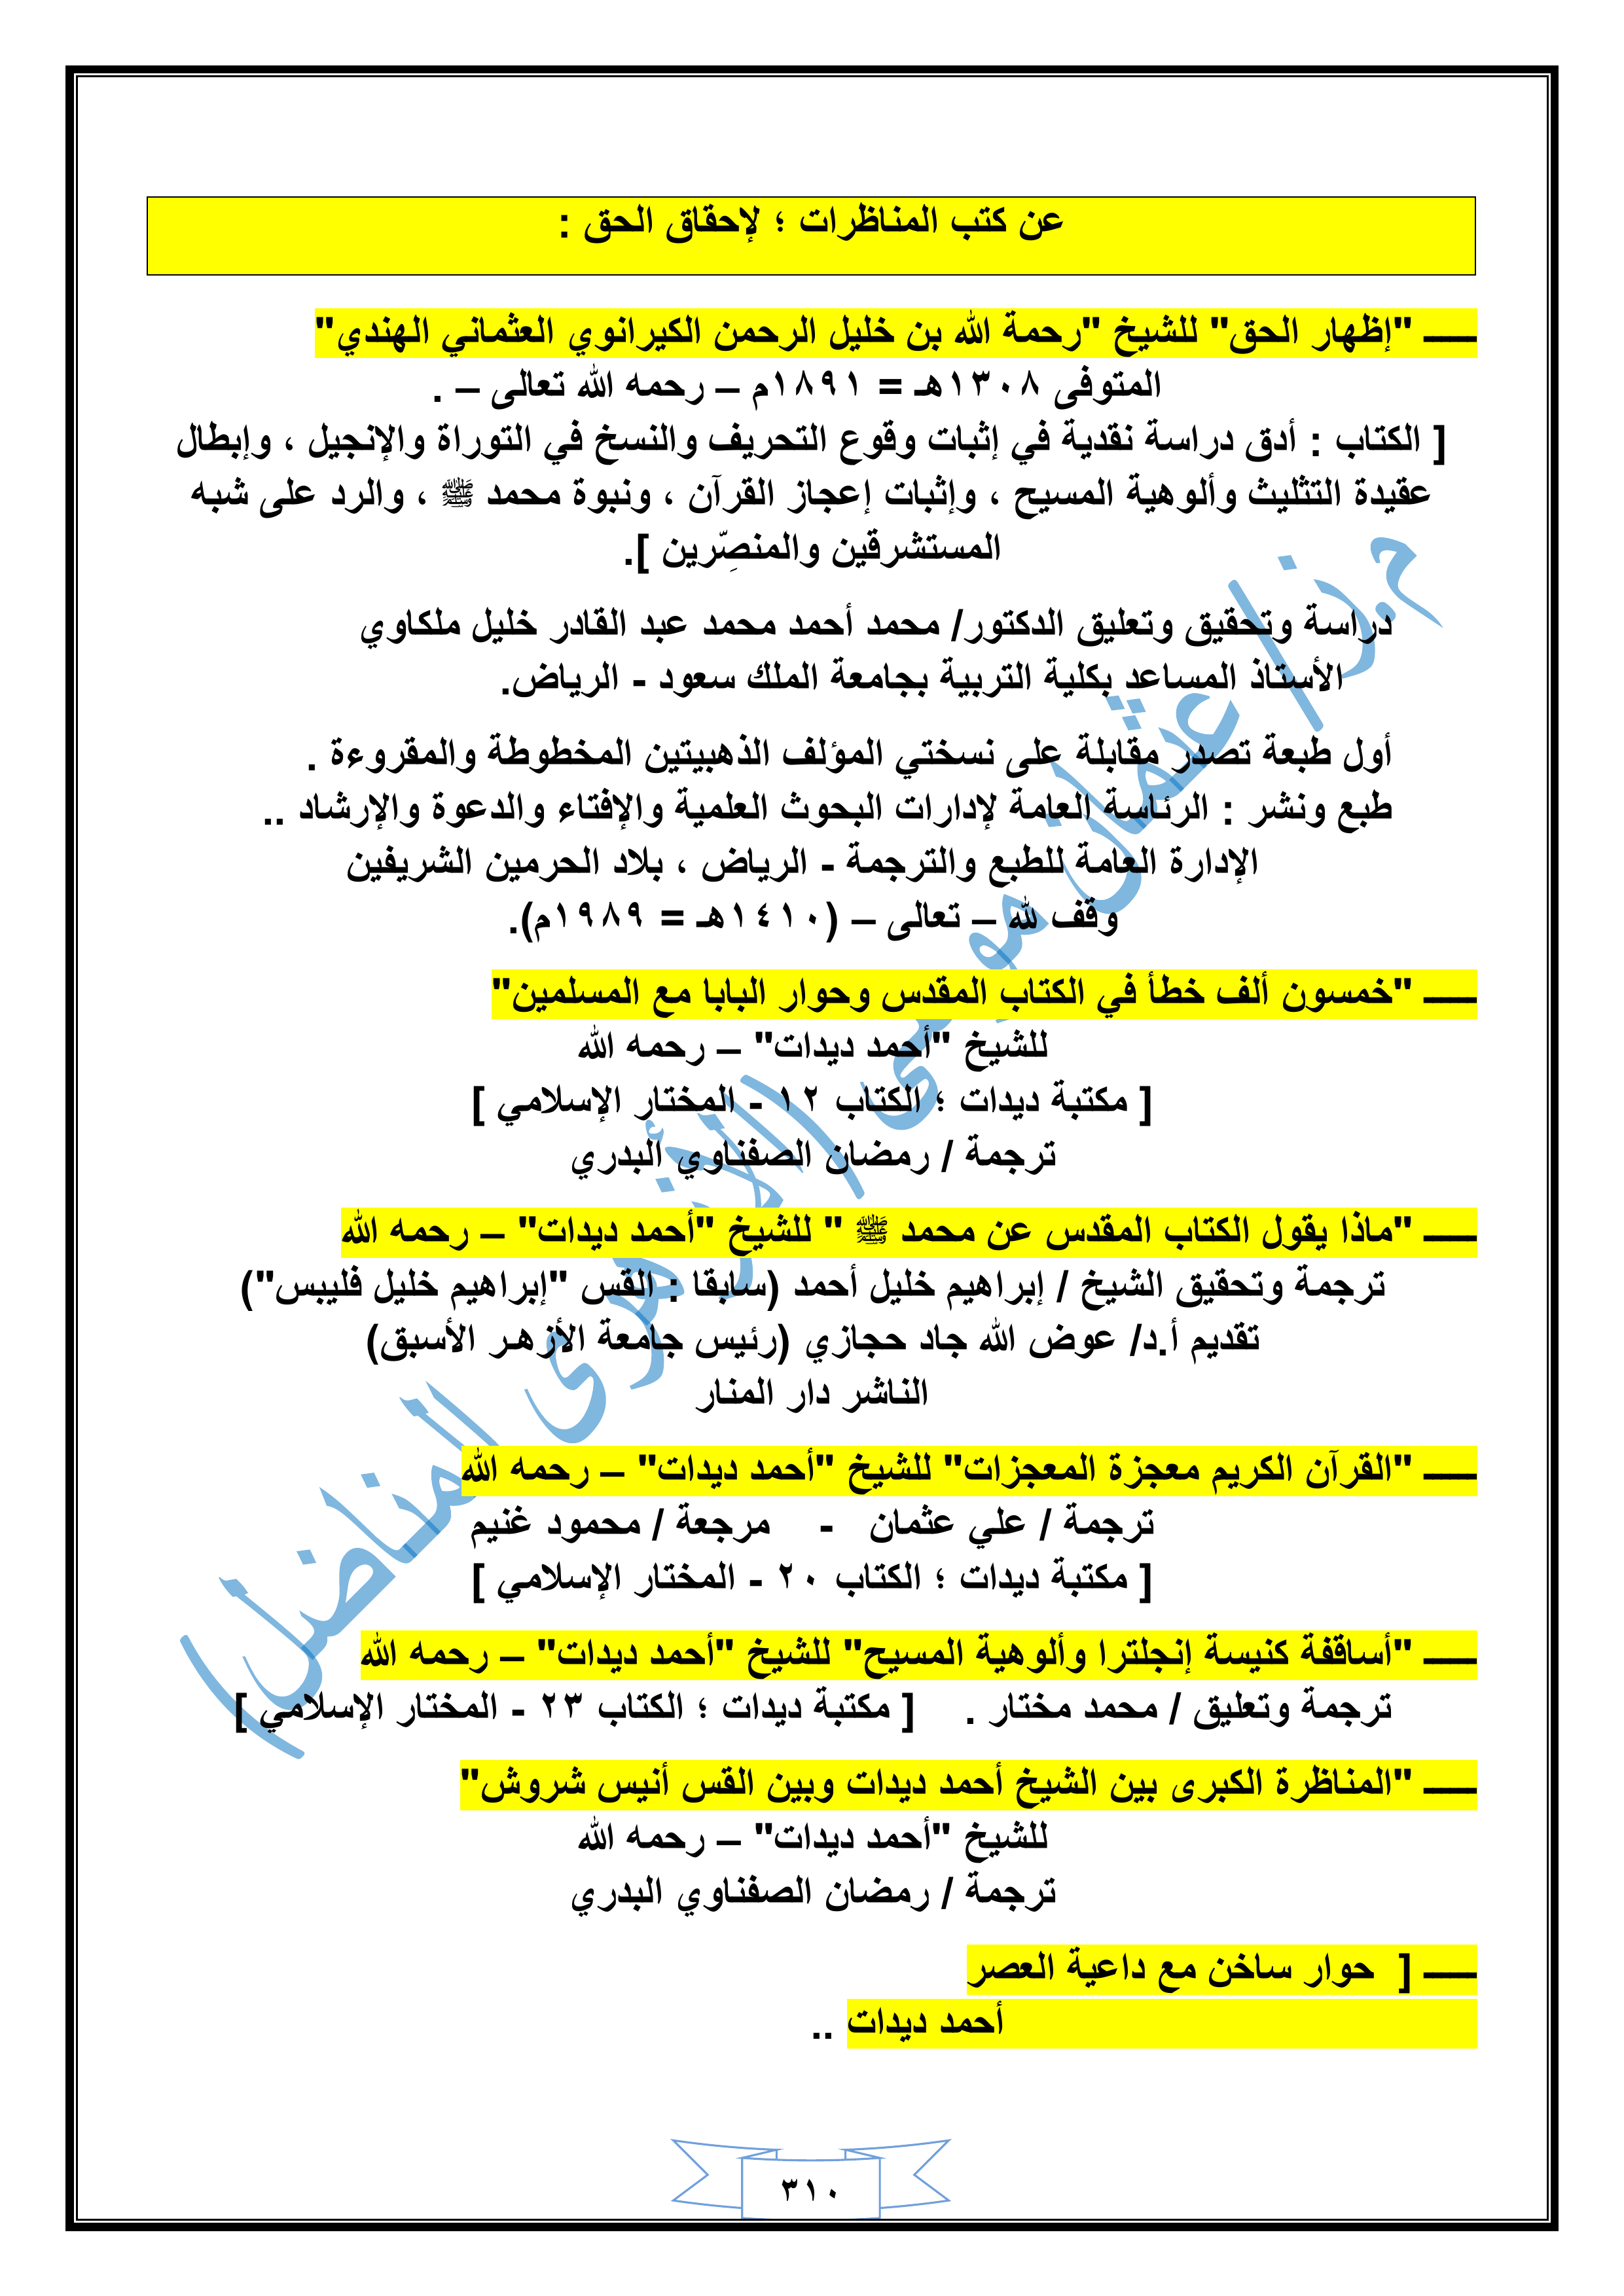 عن كتب المناظرات ؛ لإحقاق الحق :
ـــــ "إظهار الحق" للشيخ "رحمة الله بن خليل الرحمن الكيرانوي العثماني الهندي"
المتوفى ١٣٠٨هـ = ١٨٩١م – رحمه الله تعالى – .
[ الكتاب : أدق دراسة نقدية في إثبات وقوع التحريف والنسخ في التوراة والإنجيل ، وإبطال
عقيدة التثليث وألوهية المسيح ، وإثبات إعجاز القرآن ، ونبوة محمد ﷺ ، والرد على شبه
المستشرقين والمنصِّرين ].
دراسة وتحقيق وتعليق الدكتور/ محمد أحمد محمد عبد القادر خليل ملكاوي
الأستاذ المساعد بكلية التربية بجامعة الملك سعود - الرياض.
أول طبعة تصدر مقابلة على نسختي المؤلف الذهبيتين المخطوطة والمقروءة .
طبع ونشر : الرئاسة العامة لإدارات البحوث العلمية والإفتاء والدعوة والإرشاد ..
الإدارة العامة للطبع والترجمة - الرياض ، بلاد الحرمين الشريفين
وقف لله – تعالى – (١٤١٠هـ = ١٩٨٩م).
ـــــ "خمسون ألف خطأ في الكتاب المقدس وحوار البابا مع المسلمين"
للشيخ "أحمد ديدات" – رحمه الله
[ مكتبة ديدات ؛ الكتاب ١٢ - المختار الإسلامي ]
ترجمة / رمضان الصفناوي البدري
ـــــ "ماذا يقول الكتاب المقدس عن محمد ﷺ " للشيخ "أحمد ديدات" – رحمه الله
ترجمة وتحقيق الشيخ / إبراهيم خليل أحمد (سابقا : القس "إبراهيم خليل فليبس")
تقديم أ.د/ عوض الله جاد حجازي (رئيس جامعة الأزهـر الأسبق)
الناشر دار المنار
ـــــ "القرآن الكريم معجزة المعجزات" للشيخ "أحمد ديدات" – رحمه الله
ترجمة / علي عثمان - مرجعة / محمود غنيم
[ مكتبة ديدات ؛ الكتاب ٢٠ - المختار الإسلامي ]
ـــــ "أساقفة كنيسة إنجلترا وألوهية المسيح" للشيخ "أحمد ديدات" – رحمه الله
ترجمة وتعليق / محمد مختار . [ مكتبة ديدات ؛ الكتاب ٢٣ - المختار الإسلامي ]
ـــــ "المناظرة الكبرى بين الشيخ أحمد ديدات وبين القس أنيس شروش"
للشيخ "أحمد ديدات" – رحمه الله
ترجمة / رمضان الصفناوي البدري
ـــــ [ حوار ساخن مع داعية العصر
أحمد ديدات ..
٣١٠